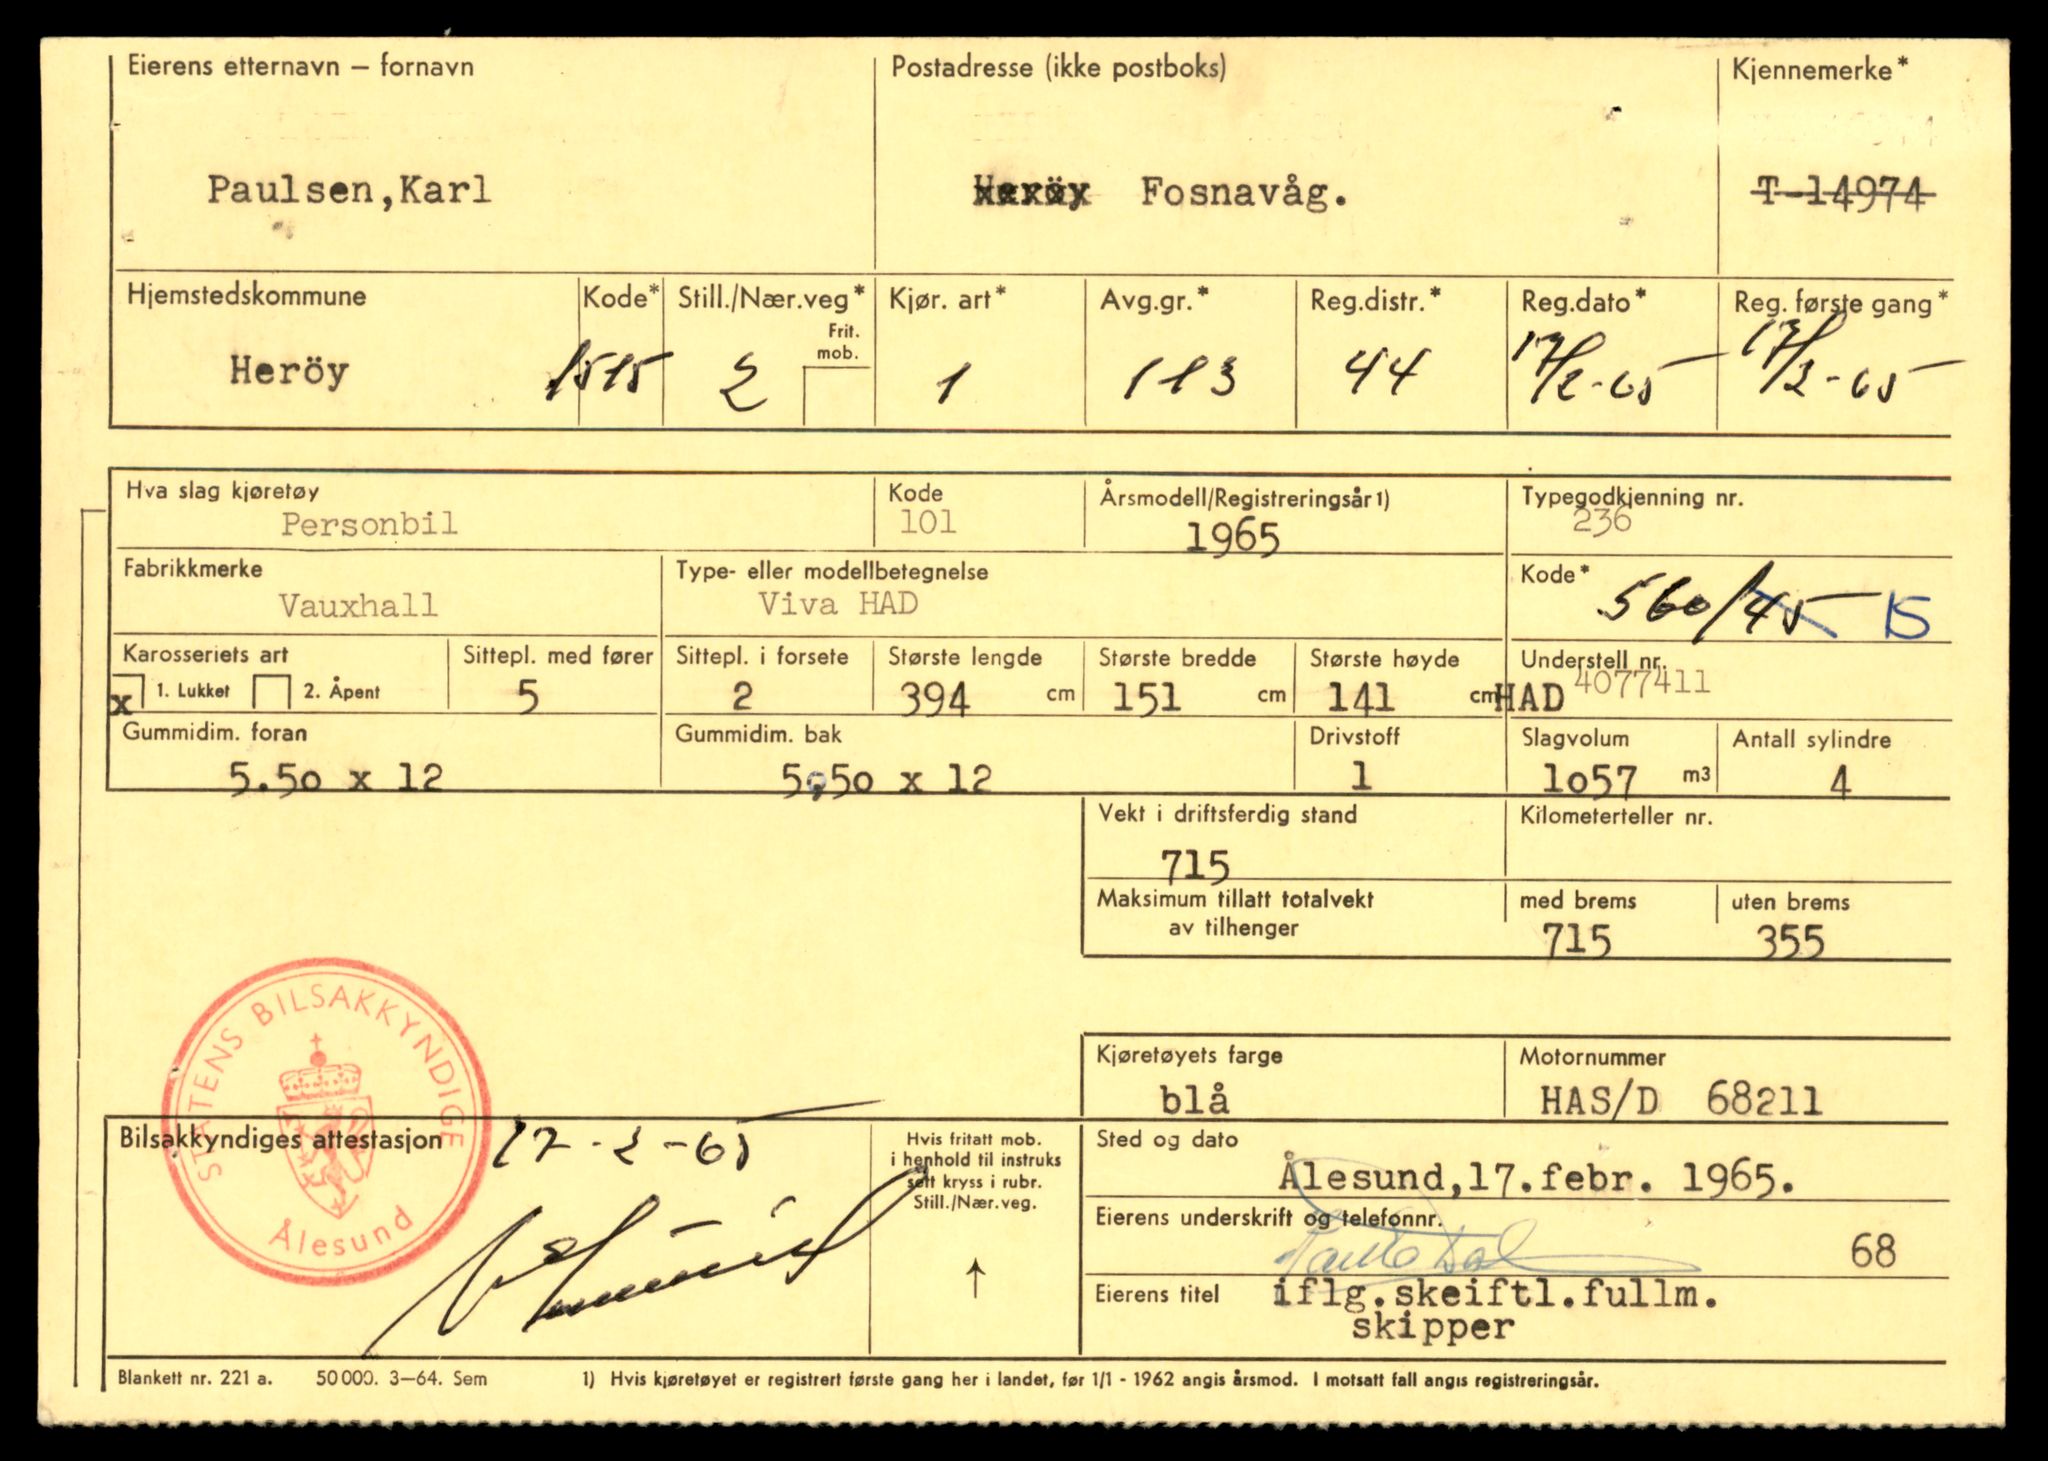 Eierens etternavn – fornavn Postadresse (ikke postboks) Kjennemerke*
Paulsen,Karl Heröy Fosnavåg. T-14974
Hjemstedskommune Kode* Still./Nær.veg* Kjør. art* Avg.gr.* Reg.distr.* Reg.dato* Reg. første gang*
Frit. mob.
Heröy 1515 2 1 113 44 17/2-65 17/2-65
Hva slag kjøretøy Kode Årsmodell/Registreringsår 1) Typegodkjenning nr.
Personbil 101 1965 236
Fabrikkmerke Type- eller modellbetegnelse Kode*
Vauxhall Viva HAD 560/45 15
Karosseriets art Sittepl. med fører Sittepl. i forsete Største lengde Største bredde Største høyde Understell nr.
x 1. Lukket 2. Åpent 5 2 394 cm 151 cm 141 cm HAD 4077411
Gummidim. foran Gummidim. bak Drivstoff Slagvolum Antall sylindre
5.50 x 12 5,50 x 12 1 1o57 m3 4
Vekt i driftsferdig stand Kilometerteller nr.
715
Maksimum tillatt totalvekt med brems uten brems
av tilhenger 715 355
STATENS BILSAKKYNDIGE
Ålesund
Kjøretøyets farge Motornummer
blå HAS/D 68211
Bilsakkyndiges attestasjon 17-2-65
Hvis fritatt mob.
i henhold til instruks
sett kryss i rubr.
Still./Nær.veg.
Sted og dato
Ålesund,17.febr. 1965.
Eierens underskrift og telefonnr.
68
Eierens titel iflg.skeiftl.fullm.
skipper
Blankett nr. 221 a. 50 000. 3–64. Sem 1) Hvis kjøretøyet er registrert første gang her i landet, før 1/1 - 1962 angis årsmod. I motsatt fall angis registreringsår.